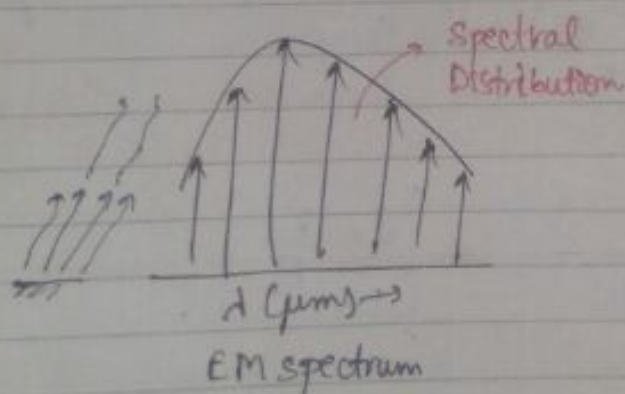 Spectral
Distribution
λ (μm) →
EM spectrum